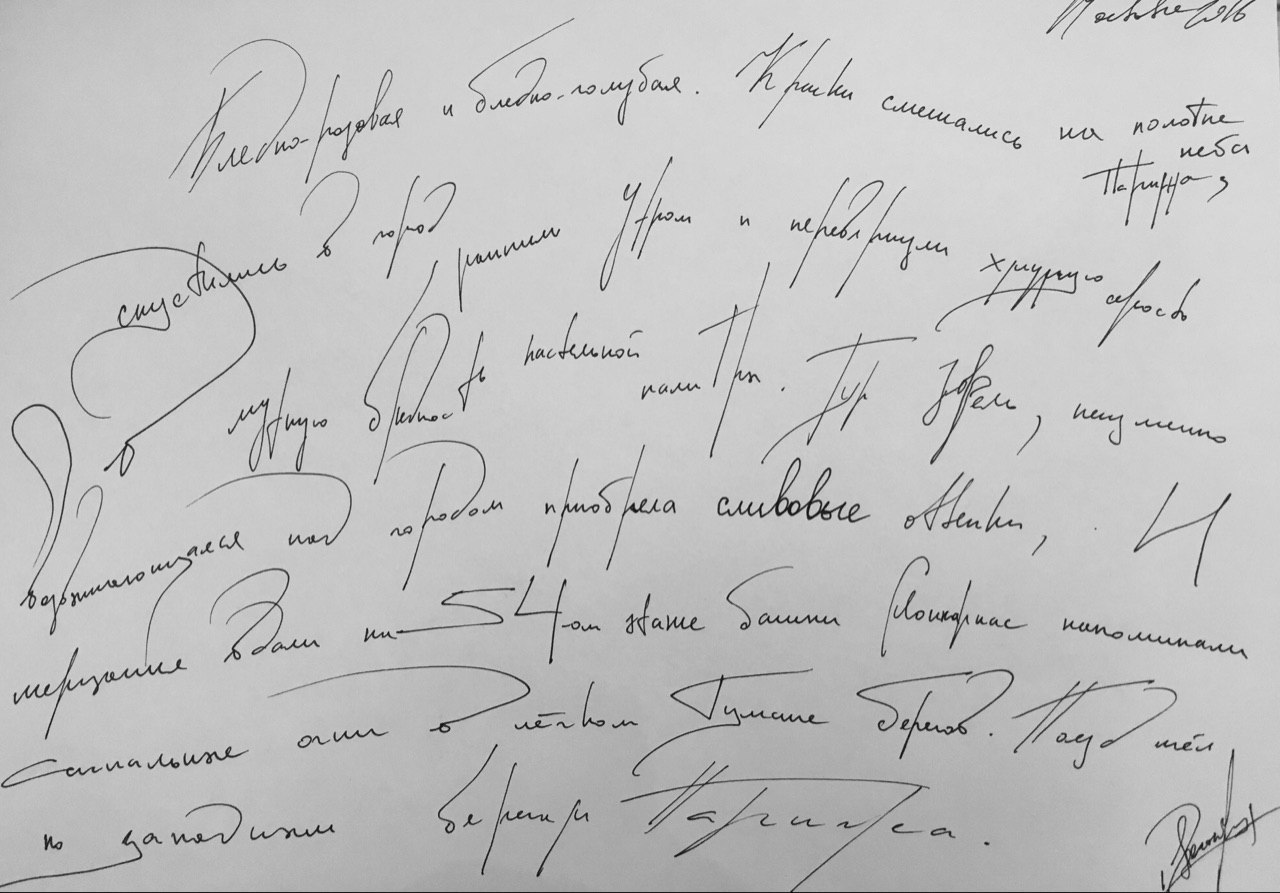 Москва 2016
Бледно-розовая и бледно-голубая. Краски смешались на полотне
неба
Парижа,
спустились в город ранним утром и перевернули хмурую серость
в мутную бледность пастельной
палитры. Тур Эфель,
возвышающаяся над городом приобрела сливовые оттенки, И
мерцание вдали на 54-ом этаже башни Монпарнас напоминали
сигнальные огни в лёгком тумане берегов. Поезд шёл
по западным берегам Парижа.